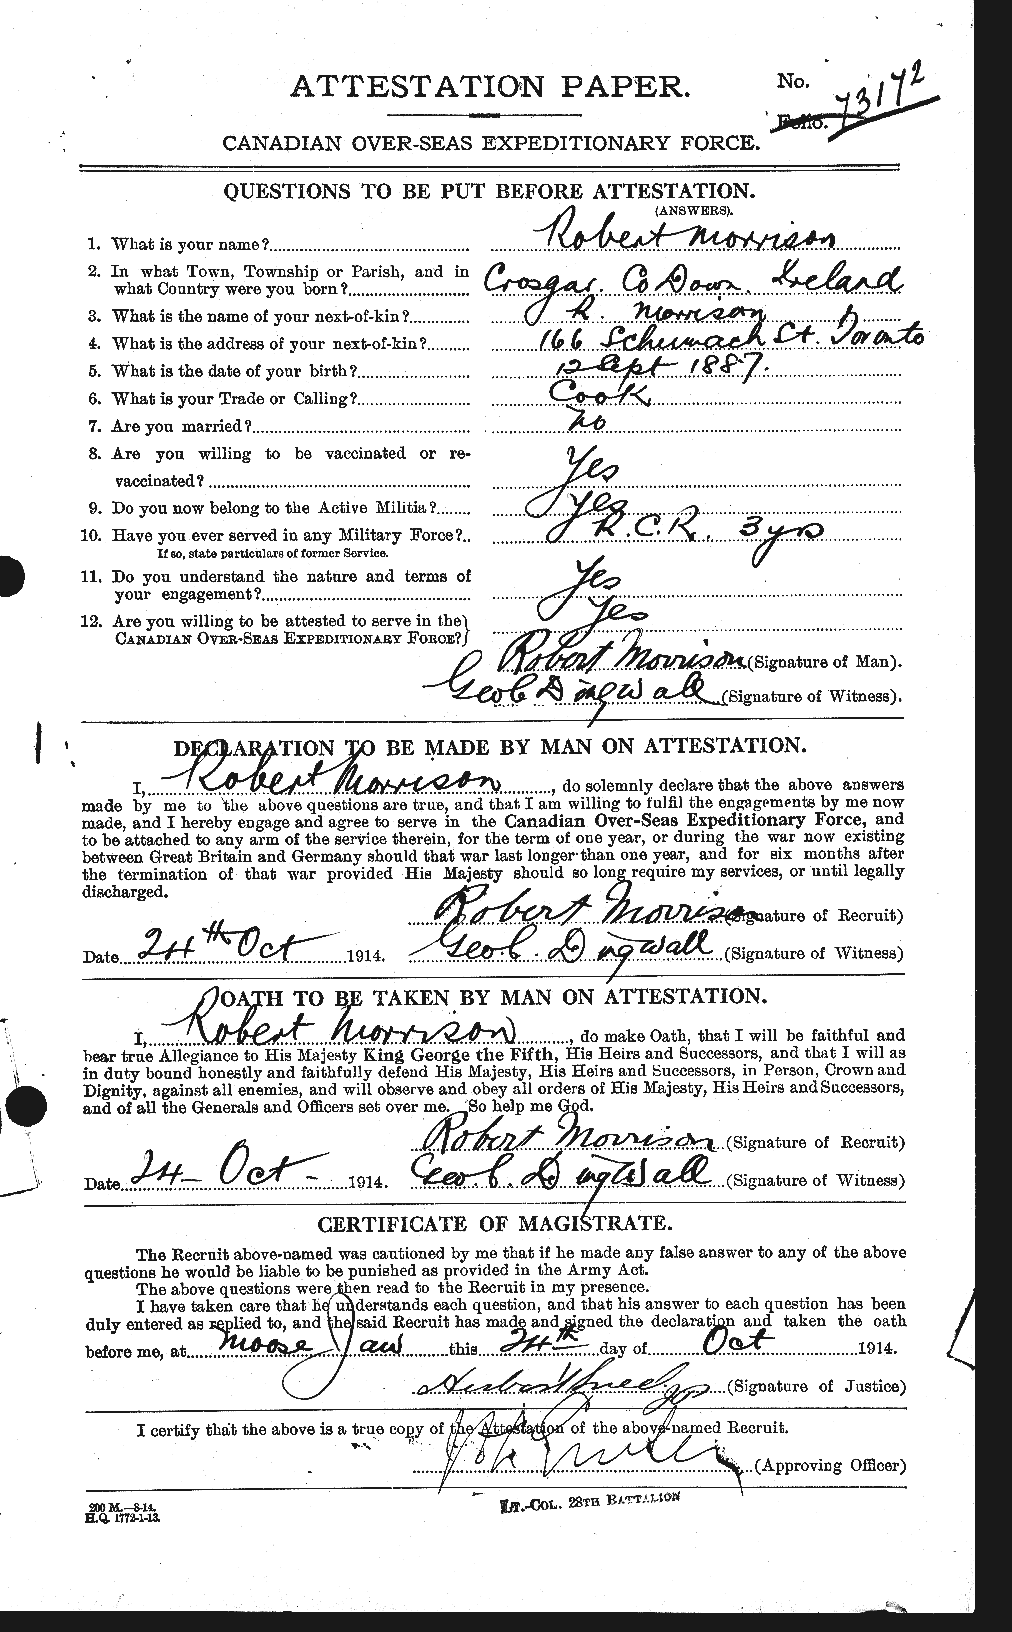 ATTESTATION PAPER.
No. 73172
Folio.
CANADIAN OVER-SEAS EXPEDITIONARY FORCE.
QUESTIONS TO BE PUT BEFORE ATTESTATION.
(ANSWERS).
1. What is your name? Robert Morrison
2. In what Town, Township or Parish, and in
what Country were you born? Crosgar. Co Down. Ireland
3. What is the name of your next-of-kin? R. Morrison
4. What is the address of your next-of-kin? 166 Schumach St. Toronto
5. What is the date of your birth? 12 Sept 1887.
6. What is your Trade or Calling? Cook
7. Are you married? No
8. Are you willing to be vaccinated or re-
vaccinated? Yes
9. Do you now belong to the Active Militia? Yes
10. Have you ever served in any Military Force? R.C.R. 3 yrs
If so, state particulars of former Service.
11. Do you understand the nature and terms of
your engagement? Yes
12. Are you willing to be attested to serve in the
CANADIAN OVER-SEAS EXPEDITIONARY FORCE? Yes
Robert Morrison (Signature of Man).
Geo C Dingwall (Signature of Witness).
DECLARATION TO BE MADE BY MAN ON ATTESTATION.
I, Robert Morrison, do solemnly declare that the above answers
made by me to the above questions are true, and that I am willing to fulfil the engagements by me now
made, and I hereby engage and agree to serve in the Canadian Over-Seas Expeditionary Force, and
to be attached to any arm of the service therein, for the term of one year, or during the war now existing
between Great Britain and Germany should that war last longer than one year, and for six months after
the termination of that war provided His Majesty should so long require my services, or until legally
discharged.
Robert Morrison (Signature of Recruit)
Date 24th Oct 1914. Geo. C. Dingwall (Signature of Witness)
OATH TO BE TAKEN BY MAN ON ATTESTATION.
I, Robert Morrison, do make Oath, that I will be faithful and
bear true Allegiance to His Majesty King George the Fifth, His Heirs and Successors, and that I will as
in duty bound honestly and faithfully defend His Majesty, His Heirs and Successors, in Person, Crown and
Dignity, against all enemies, and will observe and obey all orders of His Majesty, His Heirs and Successors,
and of all the Generals and Officers set over me. So help me God.
Robert Morrison (Signature of Recruit)
Date 24 - Oct - 1914. Geo. C. Dingwall (Signature of Witness)
CERTIFICATE OF MAGISTRATE.
The Recruit above-named was cautioned by me that if he made any false answer to any of the above
questions he would be liable to be punished as provided in the Army Act.
The above questions were then read to the Recruit in my presence.
I have taken care that he understands each question, and that his answer to each question has been
duly entered as replied to, and the said Recruit has made and signed the declaration and taken the oath
before me, at Moose Jaw this 24th day of Oct 1914.
(Signature of Justice)
I certify that the above is a true copy of the Attestation of the above-named Recruit.
(Approving Officer)
LT.-COL. 28TH BATTALION
200 M.—8-14.
H.Q. 1772-1-13.